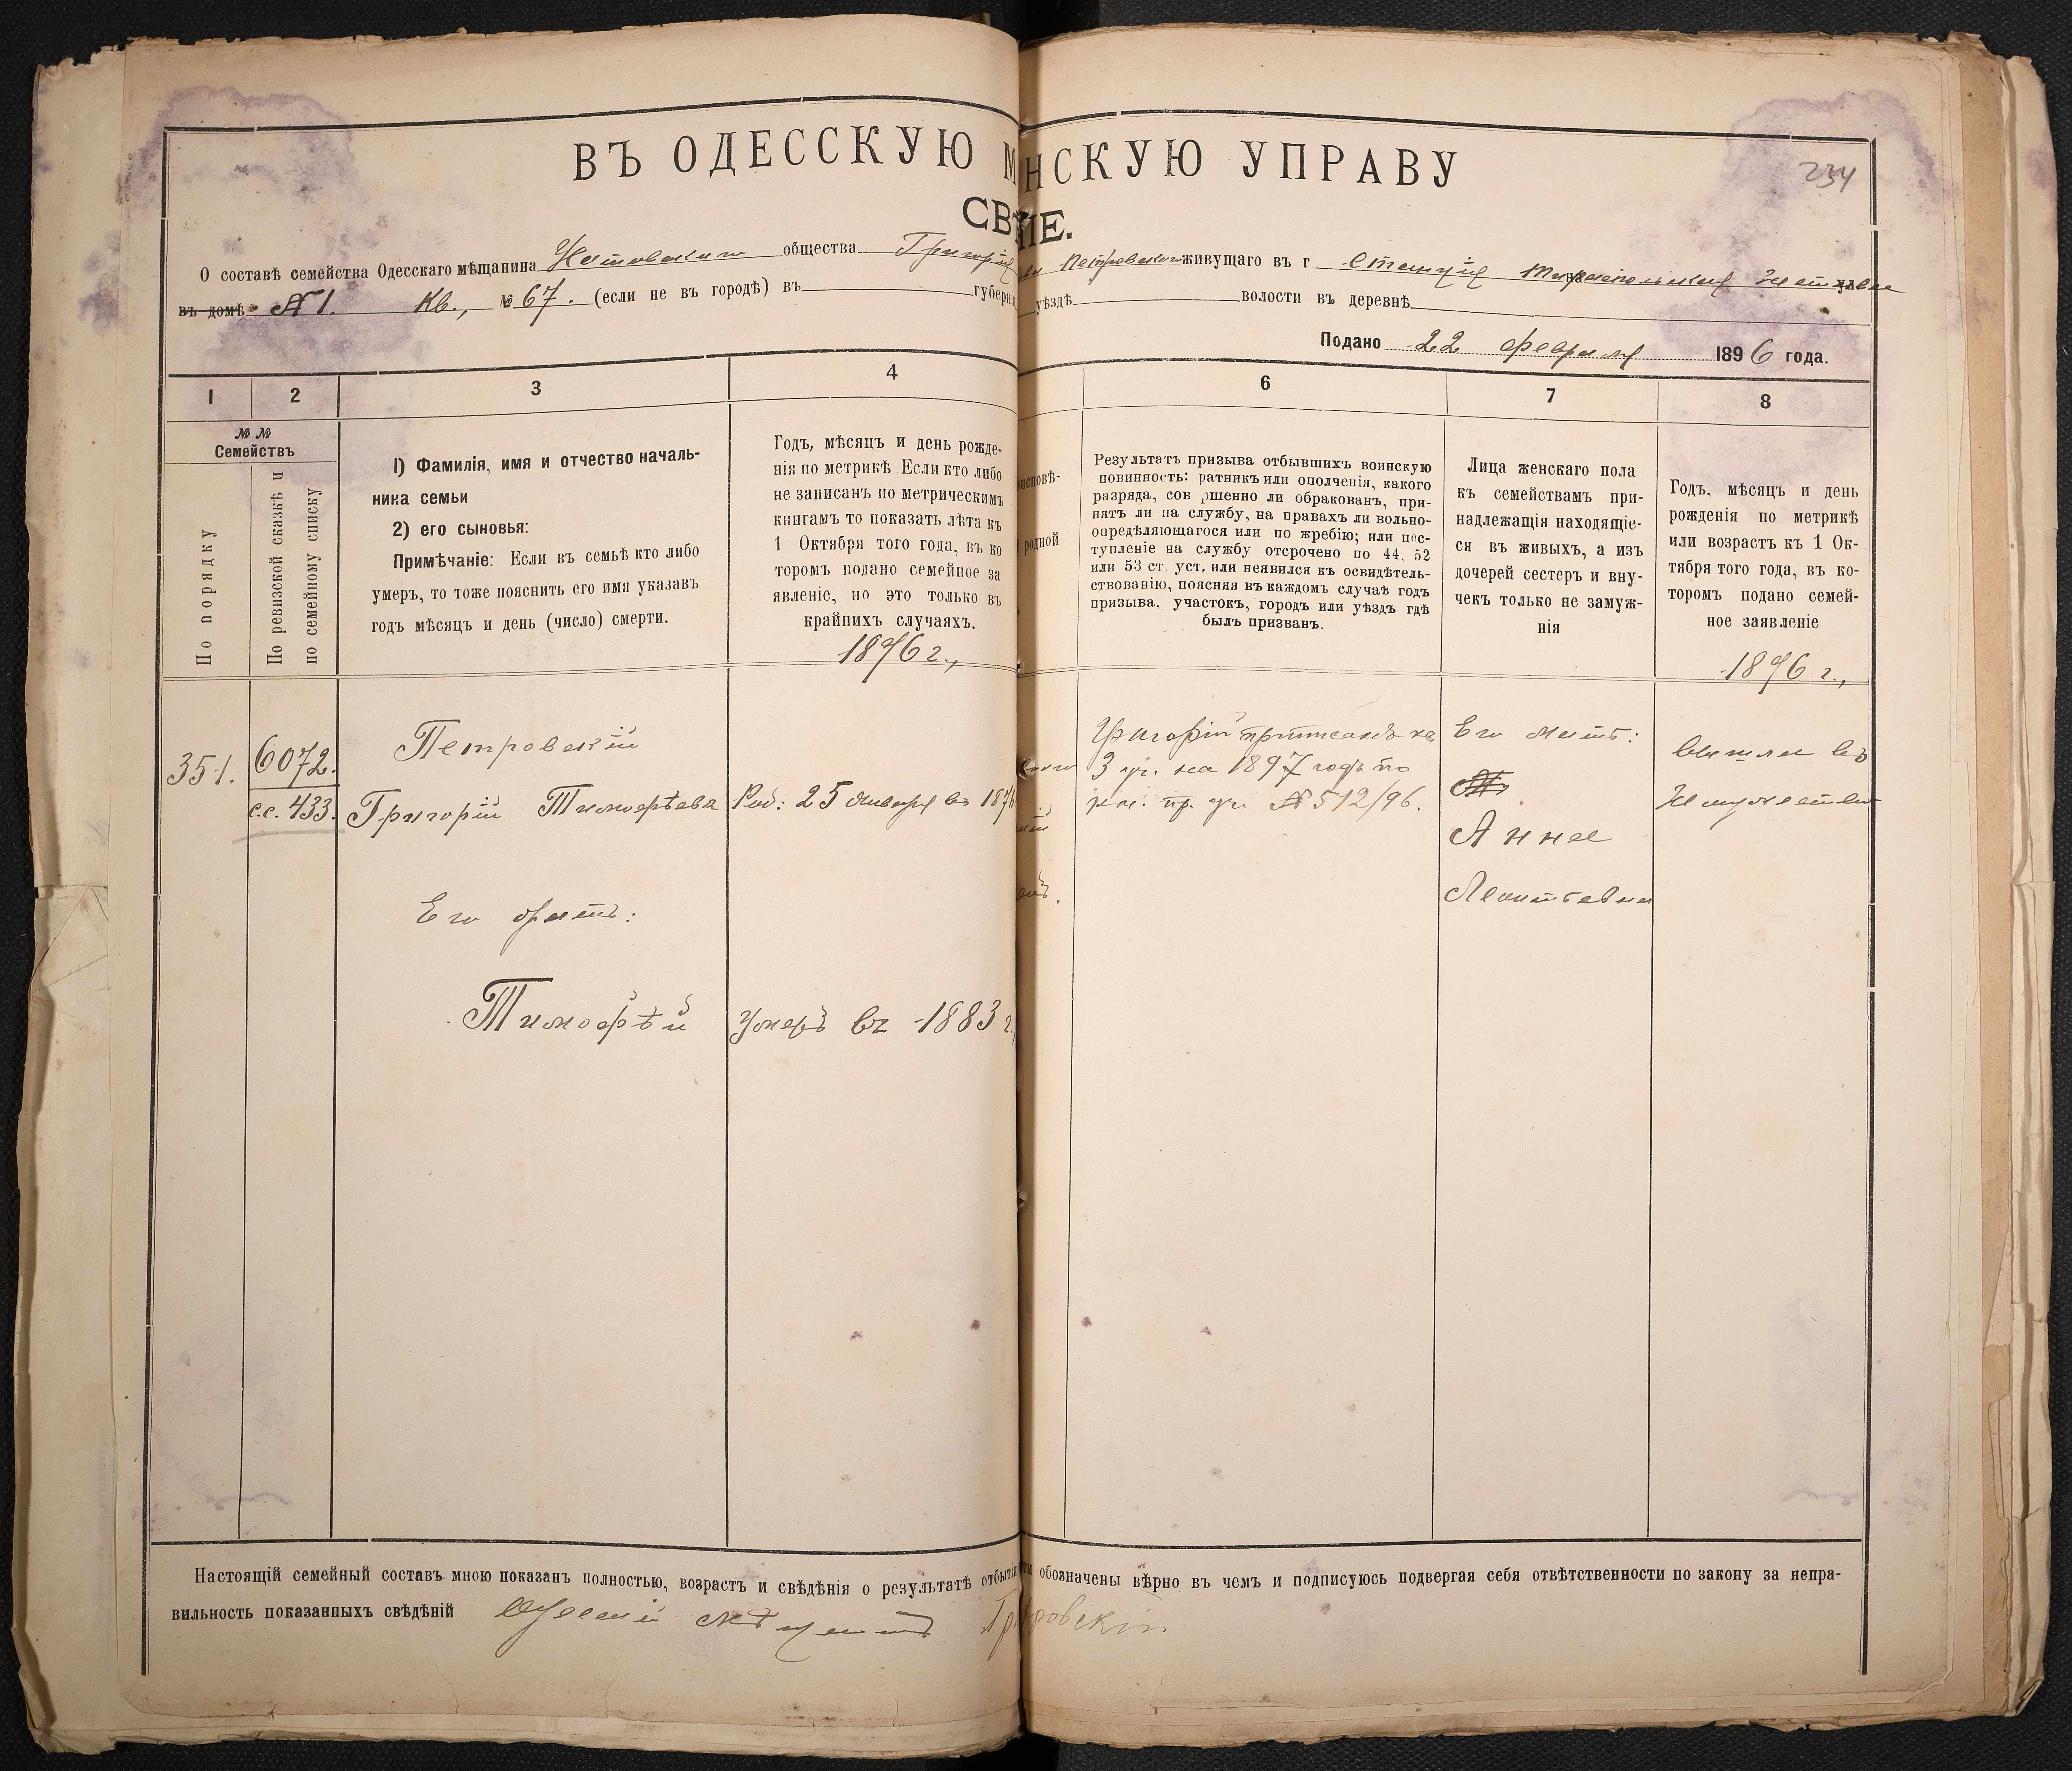 ВЪ ОДЕССКУЮ М НСКУЮ УПРАВУ
234
СВѢ НІЕ.
О составѣ семейства Одесскаго мѣщанина общества Григорія Петровскаго живущаго въ г Станція Тираспольская
въ домѣ № 1. Кв., № 67. (если не въ городѣ) въ губерніи уѣздѣ волости въ деревнѣ
Подано 22 февраля 1896 года.
1 2 3 4 6 7 8
№№ Семействъ
По порядку
По ревизской сказкѣ и по семейному списку
1) Фамилія, имя и отчество началь-
ника семьи
2) его сыновья:
Примѣчаніе: Если въ семьѣ кто либо
умеръ, то тоже пояснить его имя указавъ
годъ мѣсяцъ и день (число) смерти.
Годъ, мѣсяцъ и день рожде-
нія по метрикѣ Если кто либо
не записанъ по метрическимъ
книгамъ то показать лѣта къ
1 Октября того года, въ ко
торомъ подано семейное за
явленіе, но это только въ
крайнихъ случаяхъ.
1896 г.,
исповѣ-
родной
Результатъ призыва отбывшихъ воинскую
повинность: ратникъ или ополченія, какого
разряда, сов ршенно ли обракованъ, при-
нятъ ли на службу, на правахъ ли вольно-
опредѣляющагося или по жребію; или пос-
тупленіе на службу отсрочено по 44, 52
или 53 ст. уст, или неявился къ освидѣтель-
ствованію, поясняя въ каждомъ случаѣ годъ
призыва, участокъ, городъ или уѣздъ гдѣ
былъ призванъ.
Лица женскаго пола
къ семействамъ при-
надлежащія находящіе-
ся въ живыхъ, а изъ
дочерей сестеръ и вну-
чекъ только не замуж-
нія
Годъ, мѣсяцъ и день
рожденія по метрикѣ
или возрастъ къ 1 Ок-
тября того года, въ ко-
торомъ подано семей-
ное заявленіе
1896 г.,
351.
6072.
с.с. 433.
Петровскій
Григорій Тимофѣевъ
Род: 25 Января въ 1876
Его братъ:
Тимофѣй
умеръ въ 1883 г.,
Григорій приписанъ къ
3 уч. на 1897 годъ по
пр. уч. № 512/96.
Его мать:
Анна
Леонтьевна
вышла въ
замужество
Настоящій семейный составъ мною показанъ полностью, возрастъ и свѣдѣнія о результатѣ отбытія обозначены вѣрно въ чемъ и подписуюсь подвергая себя отвѣтственности по закону за непра-
вильность показанныхъ свѣдѣній Одесскій Мѣщанинъ Гр ровскій